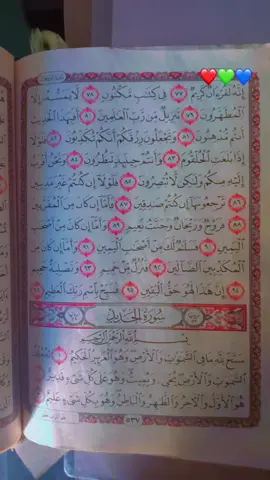 إِنَّهُۥ لَقُرْءَانٌ كَرِيمٌ ٧٧ فِى كِتَٰبٍ مَّكْنُونٍ ٧٨ لَّا يَمَسُّهُۥٓ إِلَّا
ٱلْمُطَهَّرُونَ ٧٩ تَنزِيلٌ مِّن رَّبِّ ٱلْعَٰلَمِينَ ٨٠ أَفَبِهَٰذَا ٱلْحَدِيثِ
أَنتُم مُّدْهِنُونَ ٨١ وَتَجْعَلُونَ رِزْقَكُمْ أَنَّكُمْ تُكَذِّبُونَ ٨٢ فَلَوْلَآ
إِذَا بَلَغَتِ ٱلْحُلْقُومَ ٨٣ وَأَنتُمْ حِينَئِذٍ تَنظُرُونَ ٨٤ وَنَحْنُ أَقْرَبُ
إِلَيْهِ مِنكُمْ وَلَٰكِن لَّا تُبْصِرُونَ ٨٥ فَلَوْلَآ إِن كُنتُمْ غَيْرَ مَدِينِينَ
٨٦ تَرْجِعُونَهَآ إِن كُنتُمْ صَٰدِقِينَ ٨٧ فَأَمَّآ إِن كَانَ مِنَ ٱلْمُقَرَّبِينَ
٨٨ فَرَوْحٌ وَرَيْحَانٌ وَجَنَّتُ نَعِيمٍ ٨٩ وَأَمَّآ إِن كَانَ مِنْ أَصْحَٰبِ
ٱلْيَمِينِ ٩٠ فَسَلَٰمٌ لَّكَ مِنْ أَصْحَٰبِ ٱلْيَمِينِ ٩١ وَأَمَّآ إِن كَانَ مِنَ
ٱلْمُكَذِّبِينَ ٱلضَّآلِّينَ ٩٢ فَنُزُلٌ مِّنْ حَمِيمٍ ٩٣ وَتَصْلِيَةُ جَحِيمٍ
٩٤ إِنَّ هَٰذَا لَهُوَ حَقُّ ٱلْيَقِينِ ٩٥ فَسَبِّحْ بِٱسْمِ رَبِّكَ ٱلْعَظِيمِ ٩٦
سُورَةُ الْحَدِيدِ
بِسْمِ ٱللَّهِ ٱلرَّحْمَٰنِ ٱلرَّحِيمِ
سَبَّحَ لِلَّهِ مَا فِى ٱلسَّمَٰوَٰتِ وَٱلْأَرْضِ وَهُوَ ٱلْعَزِيزُ ٱلْحَكِيمُ ١ لَهُۥ مُلْكُ
ٱلسَّمَٰوَٰتِ وَٱلْأَرْضِ يُحْىِۦ وَيُمِيتُ وَهُوَ عَلَىٰ كُلِّ شَىْءٍ قَدِيرٌ ٢
هُوَ ٱلْأَوَّلُ وَٱلْءَاخِرُ وَٱلظَّٰهِرُ وَٱلْبَاطِنُ وَهُوَ بِكُلِّ شَىْءٍ عَلِيمٌ ٣
٥٣٧